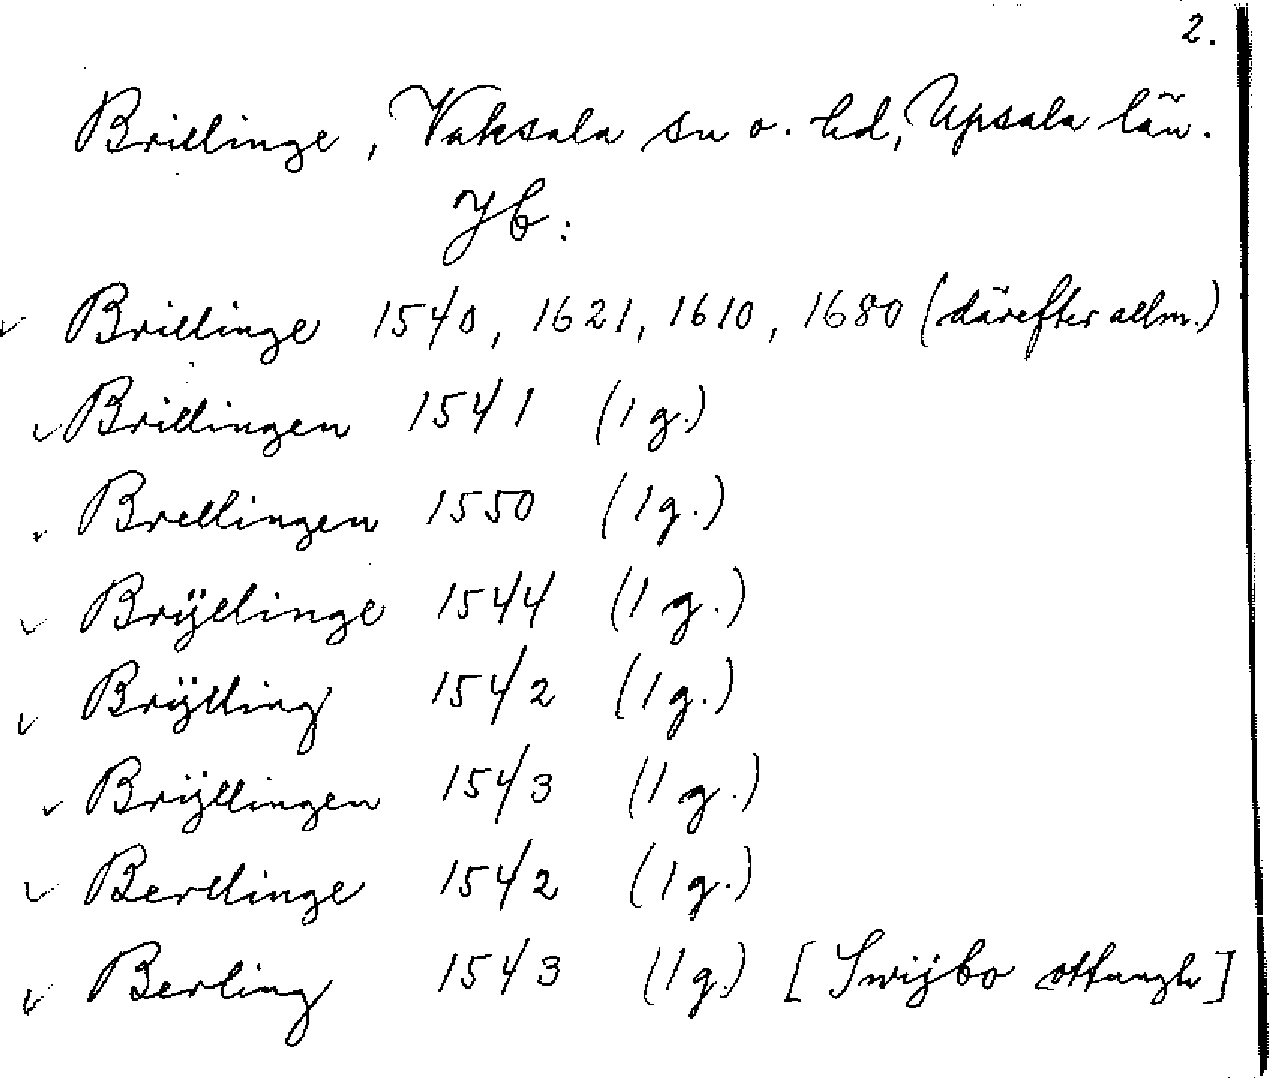 2.
Brillinge, Vaksala sn o. hd, Upsala län.
Jb:
Brillinge 1540, 1621, 1610, 1680 (därefter allm.)
Brillingen 1541 (1 g.)
Brellingen 1550 (1 g.)
Brÿllinge 1544 (1 g.)
Brÿlling 1542 (1 g.)
Brÿllingen 1543 (1 g.)
Berllinge 1542 (1 g.)
Berling 1543 (1 g.) [Swijbo ottungh]